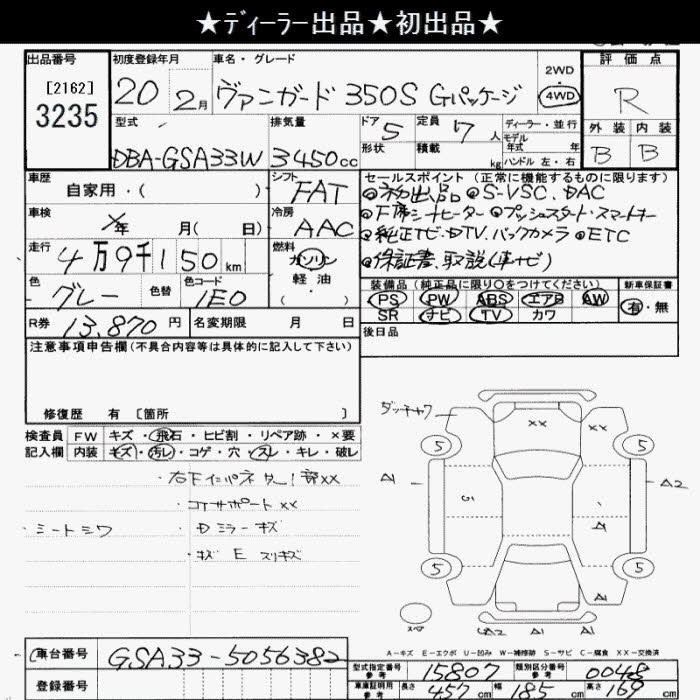 ★ディーラー出品★初出品★
出品番号
[2162]
3235
初度登録年月
20 2月
車名・グレード
ヴァンガード 350S Gパッケージ
2WD
4WD
評価点
R
外装 内装
B B
型式
DBA-GSA33W
排気量
3450cc
ドア 5
形状
定員 7人
積載 kg
ディーラー・並行
モデル
年式 年
ハンドル 左・右
車歴
自家用・( )
シフト
FAT
車検
年 月( 日)
冷房
AAC
走行
4万9千150km
燃料
ガソリン
軽油
・( )
色
グレー
色替
色コード
1E0
R券 13,870円
名変期限 月 日
セールスポイント(正常に機能するものに限ります)
◎初出品 ◎S-VSC、DAC
◎下席シートヒーター ◎プッシュスタート・スマートキー
◎純正TビDTV、バックカメラ ◎ETC
◎保証書、取説(車ナビ)
装備品(純正品に限り○をつけてください)
PS PW ABS エアB AW
SR ナビ TV カワ
新車保証書
有・無
後日品
注意事項申告欄(不具合内容等は具体的に記入して下さい)
修復歴 有 [箇所 ]
検査員
記入欄
FW キズ・飛石・ヒビ割・リペア跡・×要
内装 キズ・汚レ・コゲ・穴・スレ・キレ・破レ
・右下インパネター1部XX
・コアサポートXX
・シートシワ
・Dミラーキズ
・キズ E スリキズ
ダッチャク
XX
XX
5
5
5
5
A1
A2
A
A1
スペア
A2
A1
A1
A-キズ E-エクボ U-凹み W-補修跡 S-サビ C-腐食 XX-交換済
車台番号
GSA33-5056382
登録番号
型式指定番号
参考
15807
類別区分番号
参考
0048
車庫証明用
参考
長さ 457cm
幅 185cm
高さ 169cm